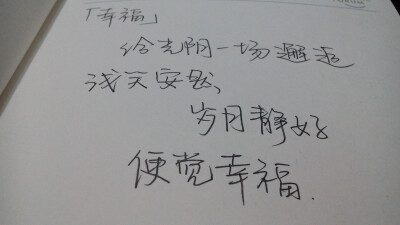 「幸福」
给光阴一场邂逅
浅笑安然、
岁月静好
便觉幸福.